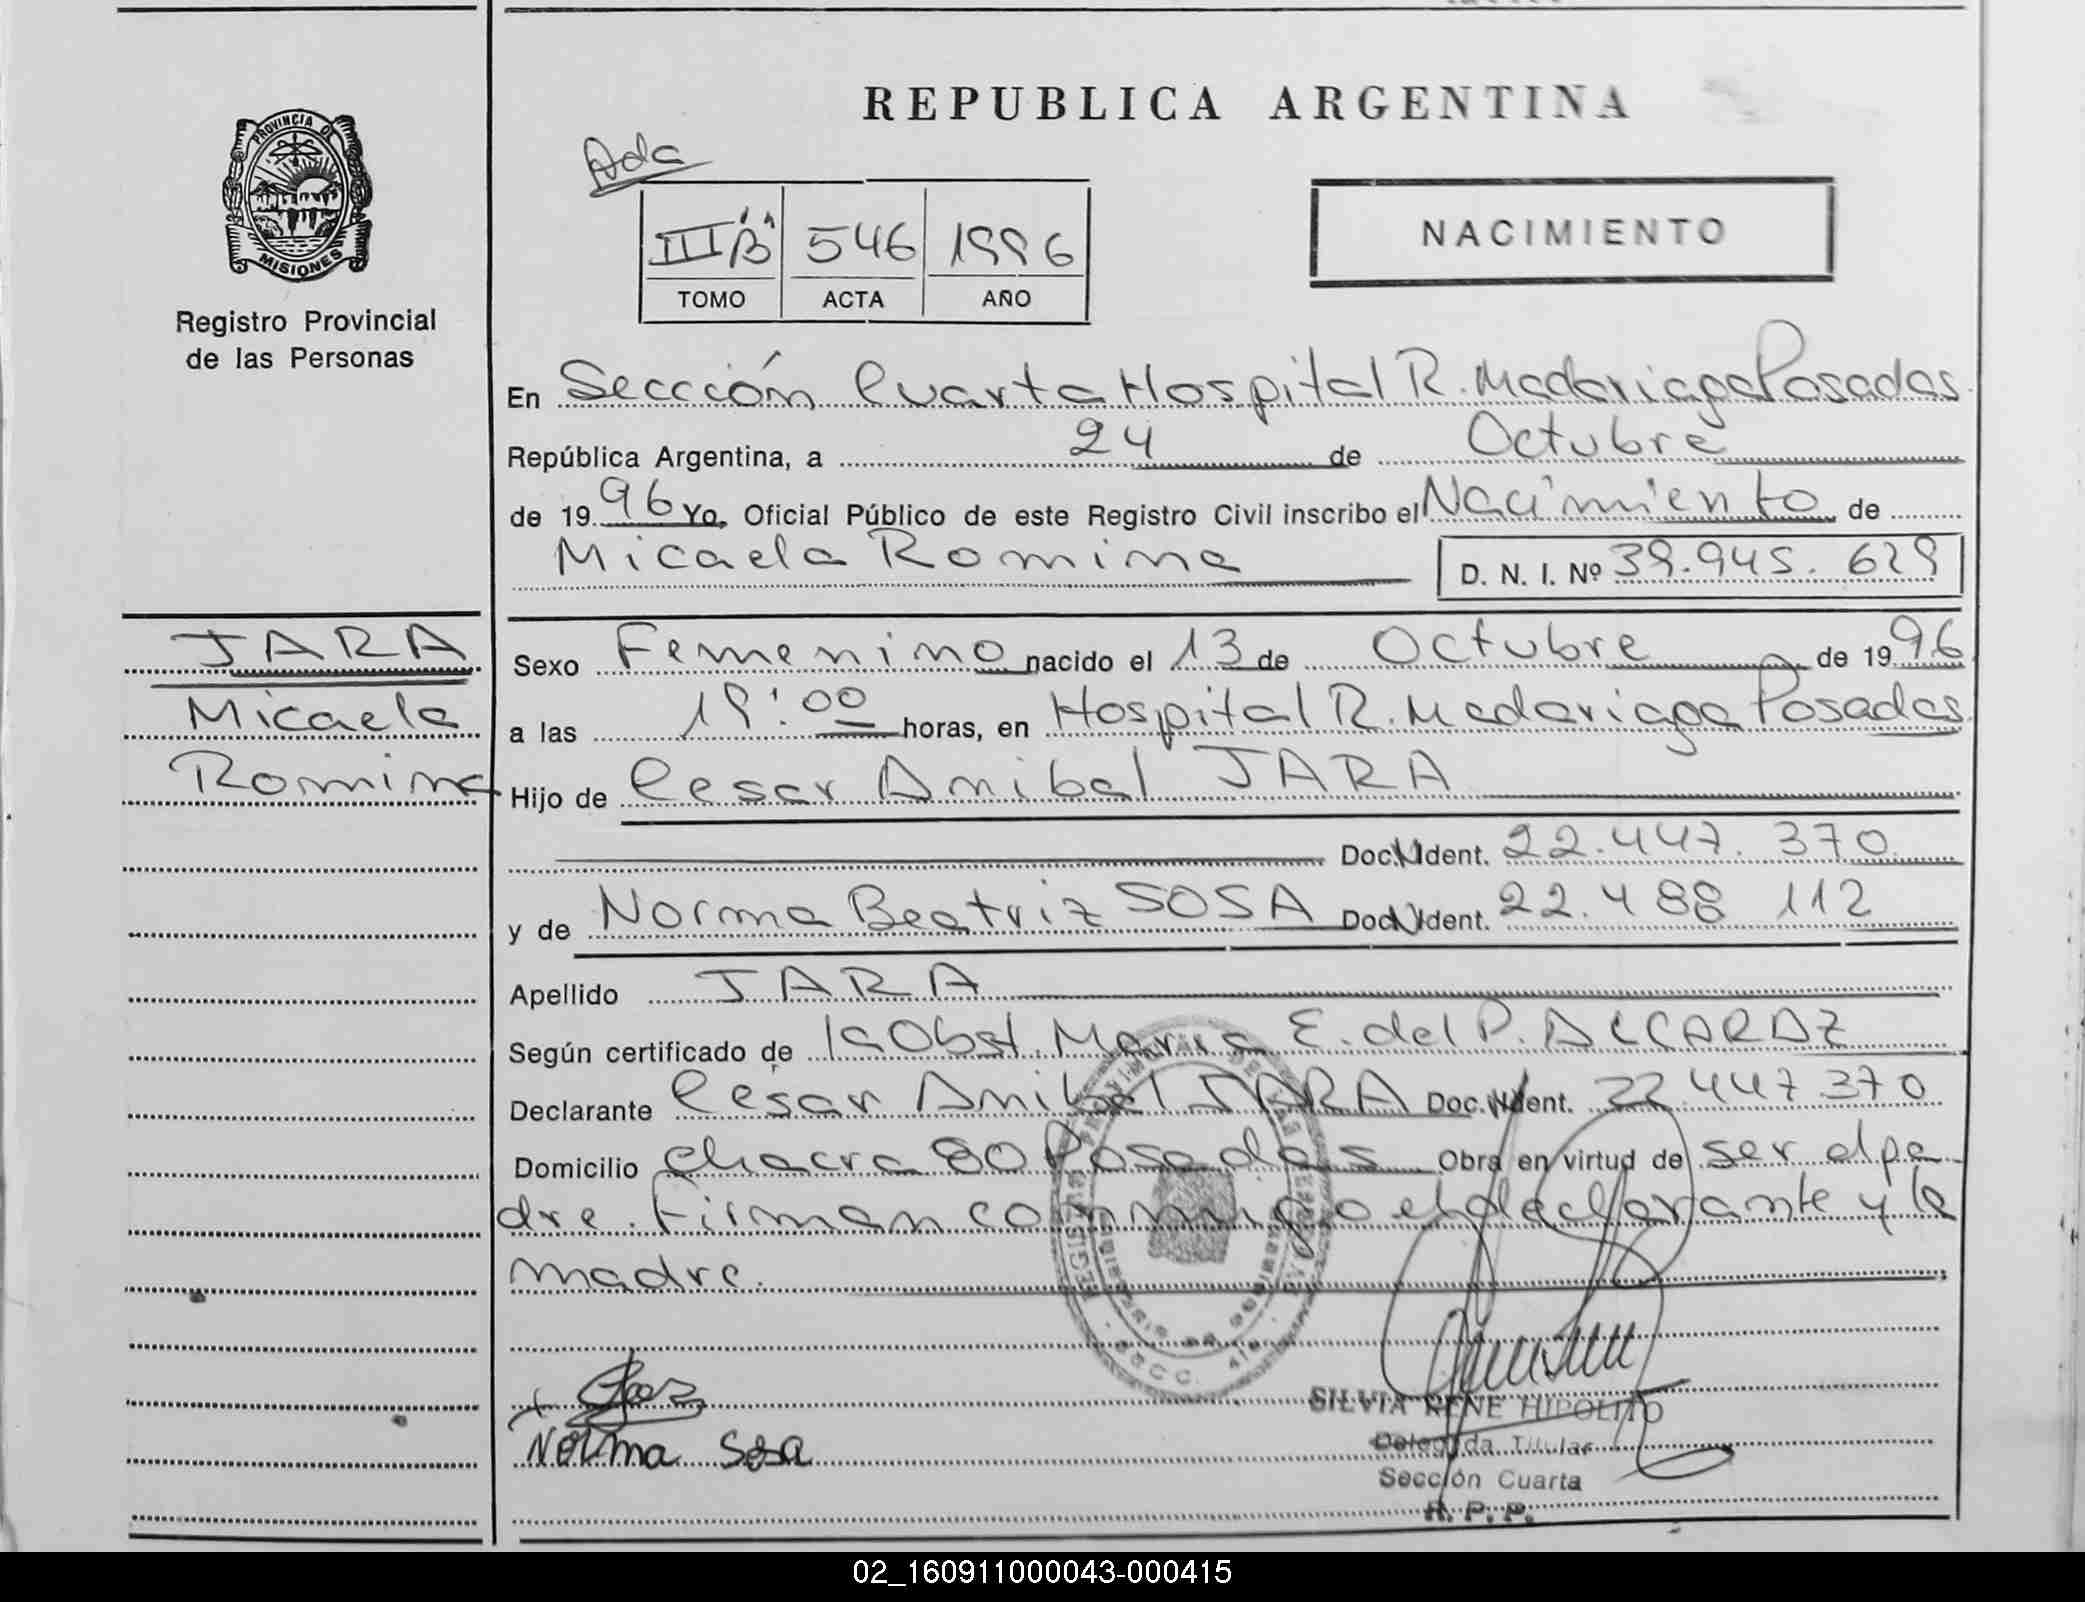 REPUBLICA ARGENTINA
Ada
PROVINCIA DE
MISIONES
Registro Provincial
de las Personas
III "B" 546 1996
TOMO ACTA AÑO
NACIMIENTO
En Seccción Cuarta Hospital R. Madariaga Posadas
República Argentina, a 24 de Octubre
de 1996 Yo, Oficial Público de este Registro Civil inscribo el Nacimiento de
Micaela Romina D. N. I. Nº 39.945.629
JARA
Micaela
Romina
Sexo Femenino nacido el 13 de Octubre de 1996
a las 19:00 horas, en Hospital R. Madariaga Posadas
Hijo de Cesar Anibal JARA
Doc. N Ident. 22.447.370
y de Norma Beatriz SOSA Doc. N Ident. 22.488 112
Apellido JARA
Según certificado de la Obst. Maria E. del P. ALCARAZ
Declarante Cesar Anibal JARA Doc. N Ident. 22.447.370
Domicilio Chacra 80 Posadas Obra en virtud de ser el pa
dre. Firman conmigo el declarante y la
madre.
Norma Sosa
SILVIA RENE HIPOLITO
Delegada Titular
Sección Cuarta
R. P. P.
02_160911000043-000415